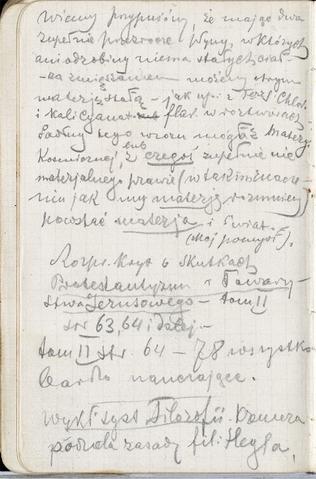 Wiemy przypuśćmy, że mając dwa
zupełnie przezrocze płyny, w których
ani odrobiny niema stałych ciał –
za zmieszaniem możemy otrzym
materję stałą – jak np. z Chlor
i Kali Cyanat w roztworach
Podług tego wzoru mogła z Materji
Kosmicznej, lub z czegoś zupełnie nie
materjalnego prawie (w takim znacze
niu jak my materję rozumiemy)
powstać materja i Świat.
(Mój pomysł).
Rozpr. Kryt o Skutkach
Protestantyzmu i Towarzy-
stwa Jezusowego – tom II
str 63, 64 i dalej. –
tom II str. 64 – 78 wszystko
bardzo nauczające.
Wykł. syst. Filozofii Kremera
podług zasady fil: Hegla,